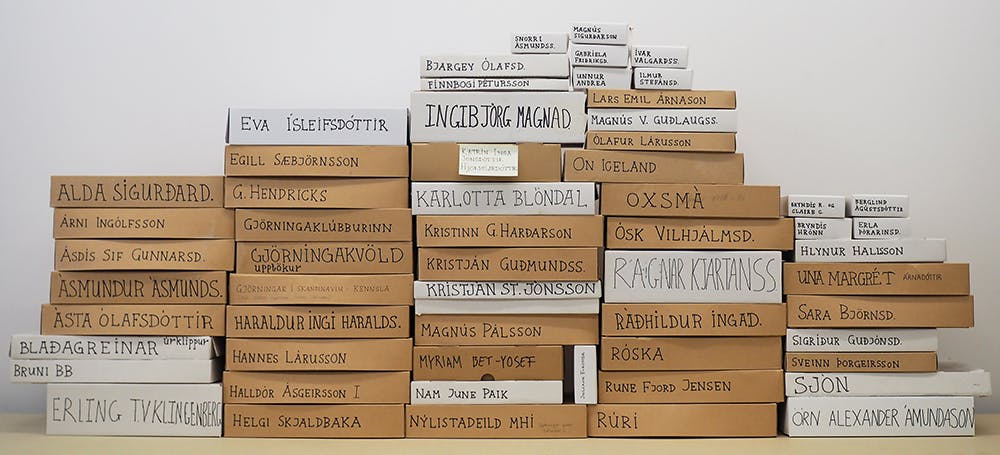 SNORRI
ÁSMUNDSS.
MAGNÚS
SIGURÐARSON
GABRIELA
FRIÐRIKSD.
ÍVAR
VALGARÐSS.
UNNUR
ANDREA
ILMUR
STEFÁNSD.
BJARGEY ÓLAFSD.
FINNBOGI PÉTURSSON
INGIBJÖRG MAGNAD.
LARS EMIL ÁRNASON
MAGNÚS V. GUÐLAUGSS.
ÓLAFUR LÁRUSSON
ON ICELAND
EVA ÍSLEIFSDÓTTIR
EGILL SÆBJÖRNSSON
KATRÍN INGA
JÓNSDÓTTIR
HJÖRDÍSARDÓTTIR
ALDA SIGURÐARD.
ÁRNI INGÓLFSSON
ÁSDÍS SIF GUNNARSD.
ÁSMUNDUR ÁSMUNDS.
ÁSTA ÓLAFSDÓTTIR
BLAÐAGREINAR úrklippur
BRUNI BB
ERLING T.V. KLINGENBERG
G. HENDRICKS
GJÖRNINGAKLÚBBURINN
GJÖRNINGAKVÖLD
upptökur
GJÖRNINGAR Í SKANDINAVIU - KENNSLA
HARALDUR INGI HARALDS.
HANNES LÁRUSSON
HALLDÓR ÁSGEIRSSON I
HELGI SKJALDBAKA
KARLOTTA BLÖNDAL
KRISTINN G HARÐARSON
KRISTJÁN GUÐMUNDSS.
KRISTJÁN ST. JÓNSSON
MAGNÚS PÁLSSON
MYRIAM BET-YOSEF
NAM JUNE PAIK
NÝLISTADEILD MHÍ
OXSMÁ
ÓSK VILHJÁLMSD.
RAGNAR KJARTANSS
RÁÐHILDUR INGAD.
RÓSKA
RUNE FJORD JENSEN
RÚRÍ
BRYNDÍS R. OG
CLAIRE C.
BERGLIND
ÁGÚSTSDÓTTIR
BRYNDÍS
HRÖNN
ERLA
ÞÓRARINSD.
HLYNUR HALLSSON
UNA MARGRÉT ÁRNADÓTTIR
SARA BJÖRNSD.
SIGRÍÐUR GUÐJÓNSD.
SVEINN ÞORGEIRSSON
SJÓN
ÖRN ALEXANDER ÁMUNDASON